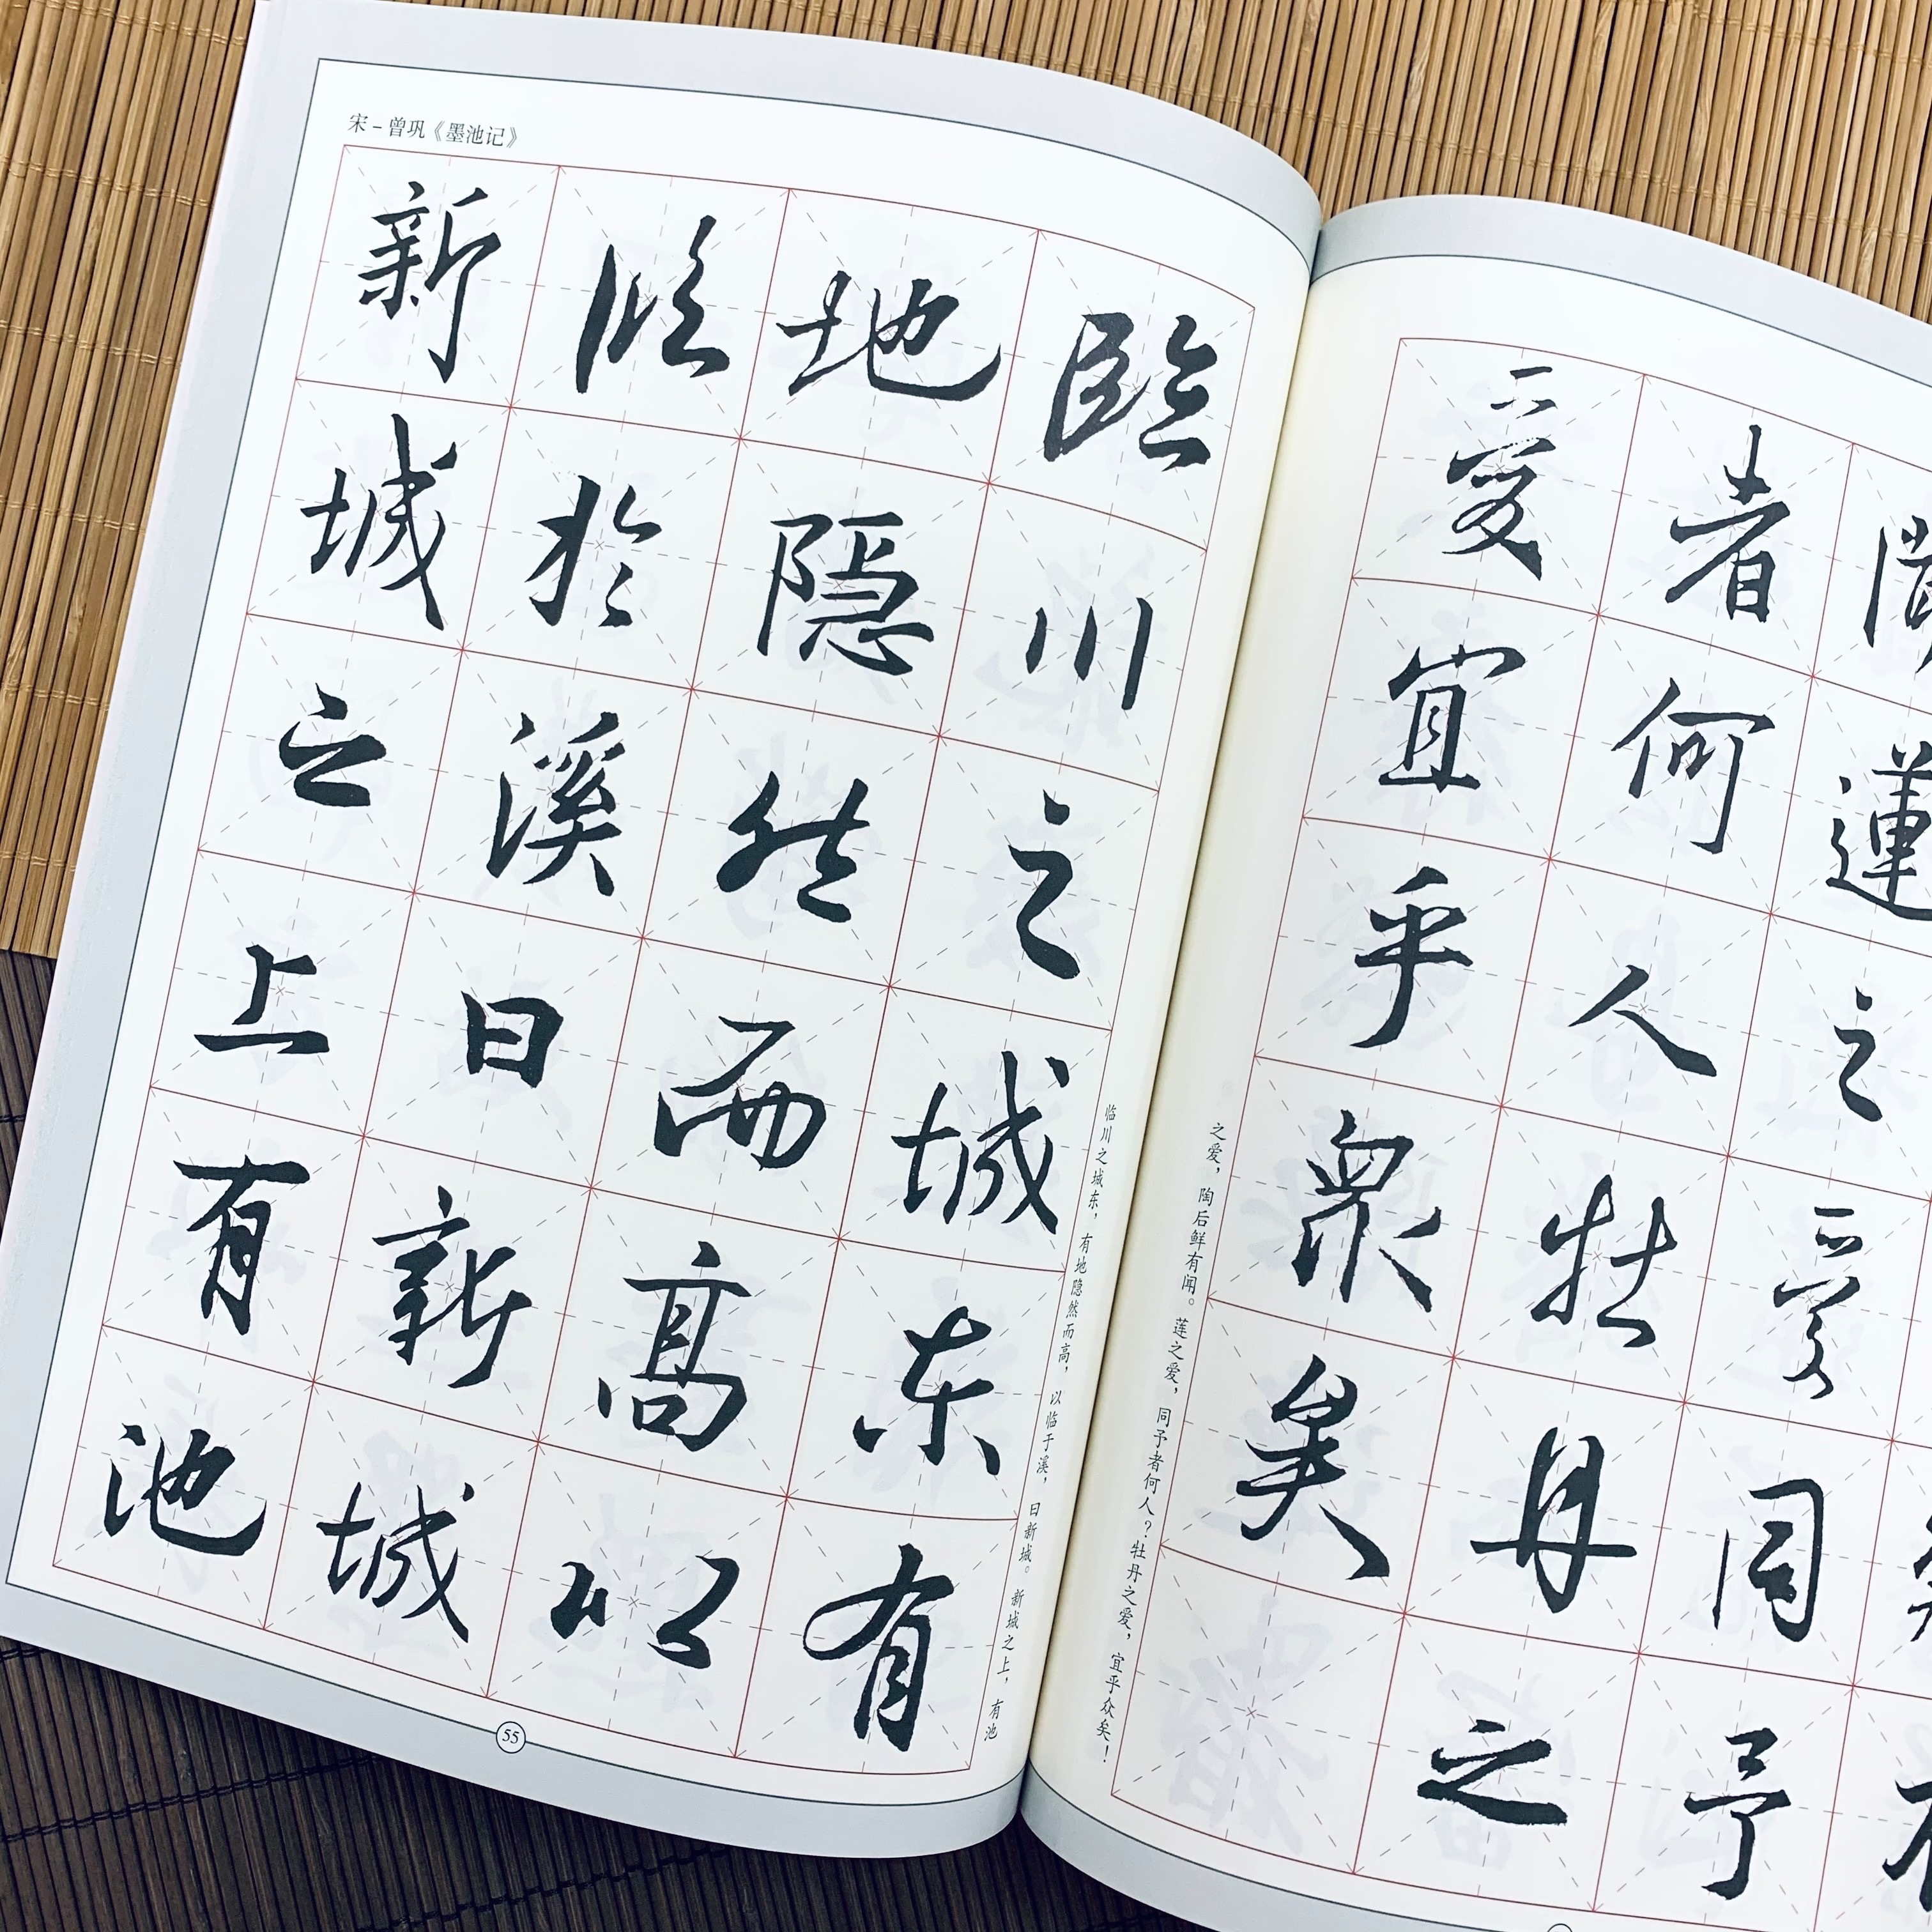 聞蓮之愛同予
者何人牡丹之
愛宜乎眾矣
之爱，陶后鲜有闻。莲之爱，同予者何人？牡丹之爱，宜乎众矣！
宋－曾巩《墨池记》
臨川之城东有
地隱然而高以
临於溪曰新城
新城之上有池
临川之城东，有地隐然而高，以临于溪，曰新城。新城之上，有池
55